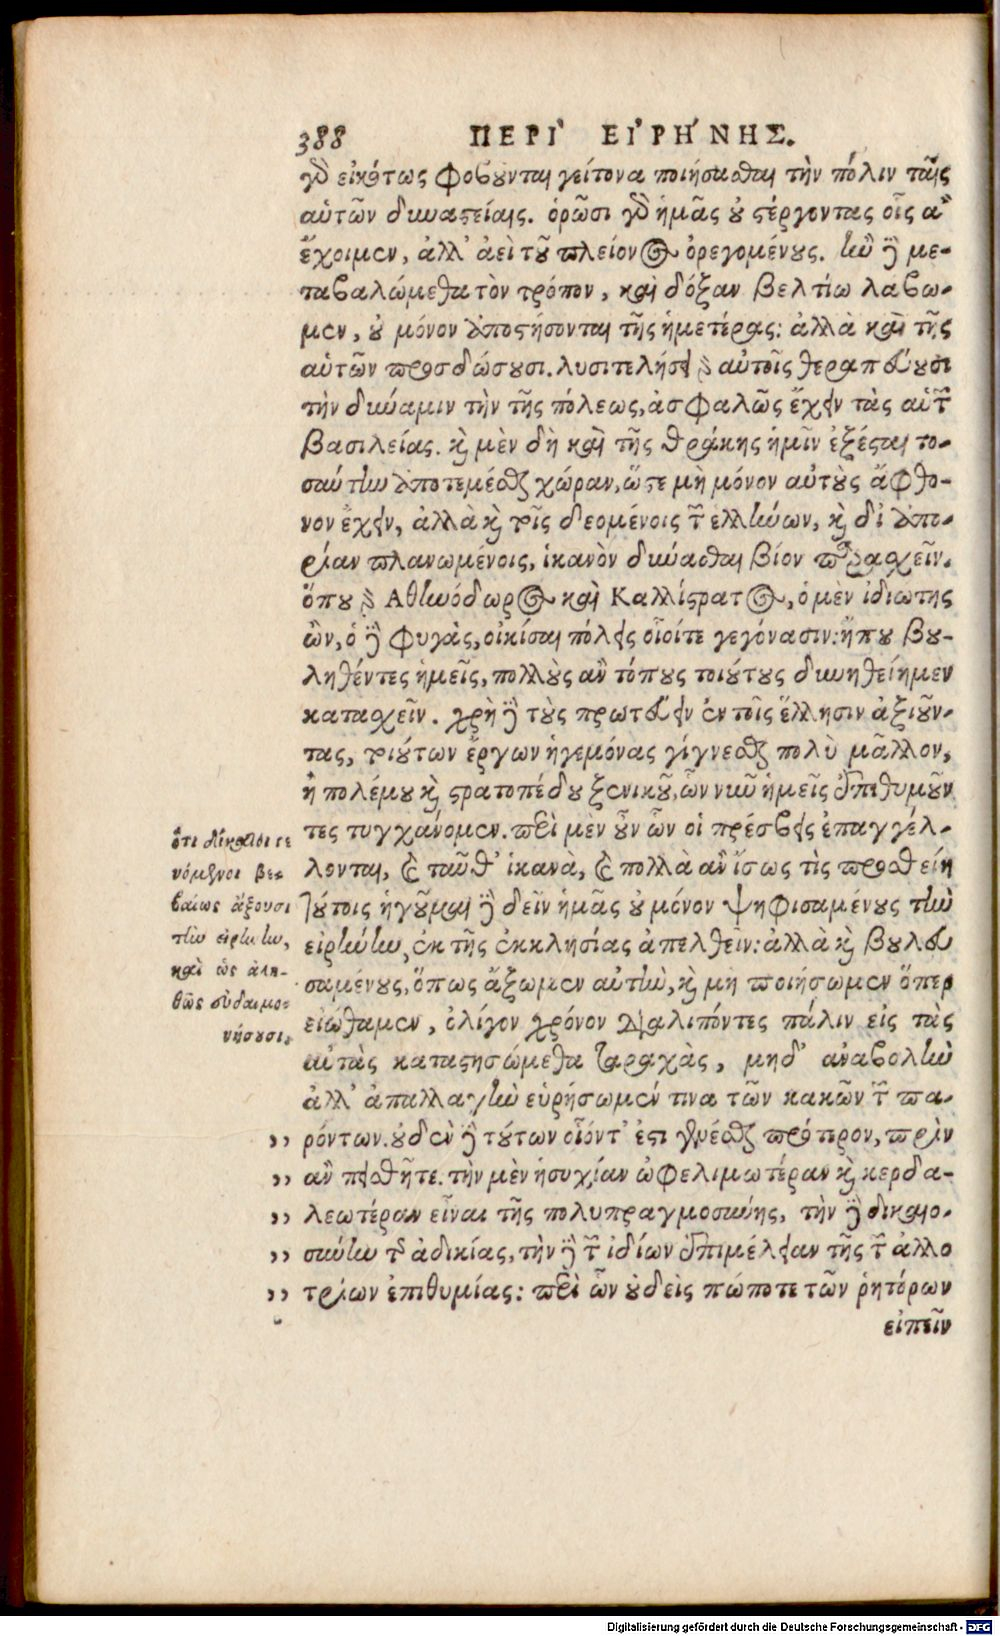 388 ΠΕΡΙ` ΕΙ᾿ΡΗ´ΝΗΣ.
γὰρ εἰκότως φοβοῦνται γείτονα ποιήσασθαι τὴν πόλιν ταῖς
αὑτῶν δυναστείαις. ὁρῶσι γὰρ ἡμᾶς οὐ στέργοντας οἷς ἂν
ἔχοιμεν, ἀλλ' ἀεὶ τοῦ πλείονος ὀρεγομένους. ἢν δὲ με-
ταβαλώμεθα τὸν τρόπον, καὶ δόξαν βελτίω λάβω-
μεν, οὐ μόνον ἀποστήσονται τῆς ἡμετέρας: ἀλλὰ καὶ τῆς
αὑτῶν προσδώσουσι. λυσιτελήσει γὰρ αὐτοῖς θεραπεύουσι
τὴν δύναμιν τὴν τῆς πόλεως, ἀσφαλῶς ἔχειν τὰς αὑτῶν
βασιλείας. καὶ μὲν δὴ καὶ τῆς Θράκης ἡμῖν ἐξέσται το-
σαύτην ἀποτεμέσθαι χώραν, ὥστε μὴ μόνον αὐτοὺς ἄφθο-
νον ἔχειν, ἀλλὰ καὶ τοῖς δεομένοις τῶν ἑλλήνων, καὶ δι' ἀπο-
ρίαν πλανωμένοις, ἱκανὸν δύνασθαι βίον παρασχεῖν.
ὅπου γὰρ Ἀθηνόδωρος καὶ Καλλίστρατος, ὁ μὲν ἰδιώτης
ὢν, ὁ δὲ φυγὰς, οἰκίσαι πόλεις οἷοίτε γεγόνασιν: ἤπου βου-
ληθέντες ἡμεῖς, πολλοὺς ἂν τόπους τοιούτους δυνηθείημεν
κατασχεῖν. χρὴ δὲ τοὺς πρωτεύειν ἐν τοῖς ἕλλησιν ἀξιοῦν-
τας, τοιούτων ἔργων ἡγεμόνας γίγνεσθαι πολὺ μᾶλλον,
ἢ πολέμου καὶ στρατοπέδου ξενικοῦ, ὧν νῦν ἡμεῖς ἐπιθυμοῦν
τες τυγχάνομεν. περὶ μὲν οὖν ὧν οἱ πρέσβεις ἐπαγγέλ-
λονται, καὶ ταῦθ' ἱκανὰ, καὶ πολλὰ ἂν ἴσως τὶς προσθείη
τούτοις ἡγοῦμαι δὲ δεῖν ἡμᾶς οὐ μόνον ψηφισαμένους τὴν
εἰρήνην, ἐκ τῆς ἐκκλησίας ἀπελθεῖν: ἀλλὰ καὶ βουλευ
σαμένους, ὅπως ἄξωμεν αὐτὴν, καὶ μὴ ποιήσωμεν ὅπερ
εἰώθαμεν, ὀλίγον χρόνον διαλιπόντες πάλιν εἰς τὰς
αὐτὰς καταστησώμεθα ταραχὰς, μηδ' ἀναβολὴν
ἀλλ' ἀπαλλαγὴν εὑρήσωμέν τινα τῶν κακῶν τῶν πα-
ρόντων. οὐδὲν δὲ τούτων οἷόντ' ἐστι γενέσθαι πρότερον, πρὶν
ἂν πεισθῆτε. τὴν μὲν ἡσυχίαν ὠφελιμωτέραν καὶ κερδα-
λεωτέραν εἶναι τῆς πολυπραγμοσύνης, τὴν δὲ δικαιο-
σύνην τῆς ἀδικίας, τὴν δὲ τῶν ἰδίων ἐπιμέλειαν τῆς τῶν ἀλλο
τρίων ἐπιθυμίας: περὶ ὧν οὐδεὶς πώποτε τῶν ῥητόρων
εἰπεῖν
ὅτι δίκαιοι γε
νόμενοι βε-
βαίως ἄξουσι
τὴν εἰρήνην,
καὶ ὡς ἀλη-
θῶς εὐδαιμο-
νήσουσι.
,,
,,
,,
,,
,,
Digitalisierung gefördert durch die Deutsche Forschungsgemeinschaft - DFG